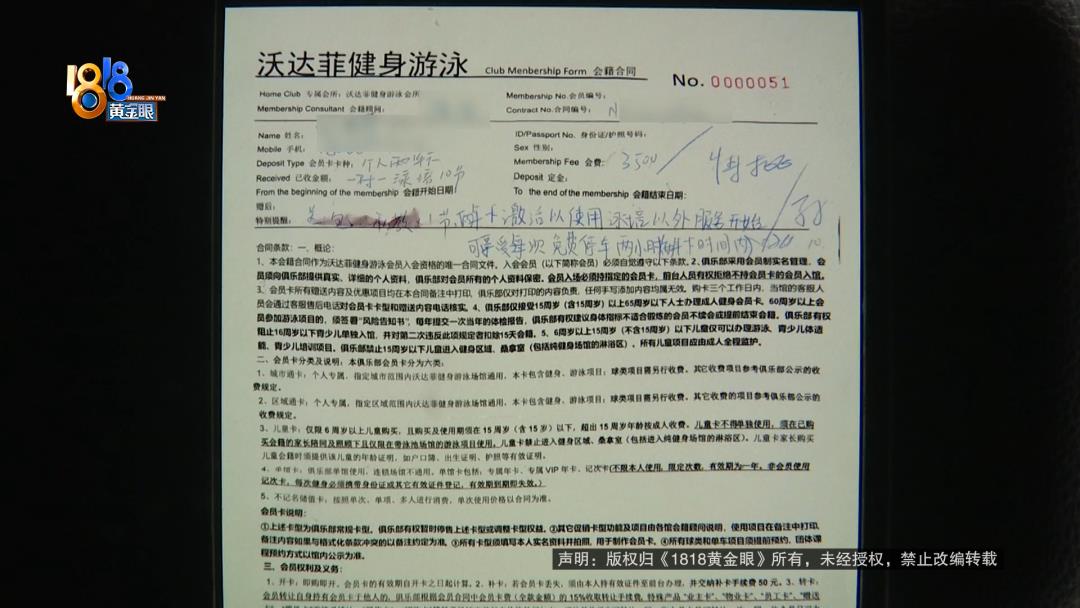 1818
黄金眼
HUANG JIN YAN
沃达菲健身游泳 Club Membership Form 会籍合同
No. 0000051
Home Club 专属会所：沃达菲健身游泳会所 Membership No.会员编号：
Membership Consultant 会籍顾问： Contract No.合同编号： N
Name 姓名： ID/Passport No. 身份证/护照号码：
Mobile 手机： Sex 性别：
Deposit Type 会员卡卡种：个人两年 Membership Fee 会费：3500 / 特批
Received 已收金额：一对一泳培10节 Deposit 定金：
From the beginning of the membership 会籍开始日期 To the end of the membership 会籍结束日期：
赠后：
特别提醒： 节，两年卡激活以使用泳培以外服务开始
可享受每次免费停车两小时
合同条款：一、概论：
1、本会籍合同作为沃达菲健身游泳会员入会资格的唯一合同文件。入会会员（以下简称会员）必须自觉遵守以下条款。2、俱乐部采用会员制实名管理，会
员须向俱乐部提供真实、详细的个人资料，俱乐部对会员所有的个人资料保密。会员入场必须持指定的会员卡，前台人员有权拒绝不持会员卡的会员入馆。
3、会员卡所有赠送内容及优惠项目均在本合同备注中打印，俱乐部仅对打印的内容负责，任何手写添加内容均属无效。购卡三个工作日内，当馆的客服人
员会通过客服售后电话对会员卡卡型和赠送内容电话核实。4、俱乐部仅接受15周岁（含15周岁）以上65周岁以下人士办理成人健身会员卡。60周岁以上会
员参加游泳项目的，须签署“风险告知书”，每年提交一次当年的体检报告，俱乐部有权建议身体指标不适合锻炼的会员不续会或提前结束会籍。俱乐部有权
阻止16周岁以下青少年单独入馆，并对第二次违反此项规定者扣除15天会籍。5、6周岁以上15周岁（不含15周岁）以下儿童仅可以办理游泳、青少儿体适
能、青少儿培训项目。俱乐部禁止15周岁以下儿童进入健身区域、桑拿室（包括纯健身场馆的淋浴区）、所有儿童项目应由成人全程监护。
二、会员卡分类及说明：本俱乐部会员卡分为六类：
1、城市通卡：个人专属，指定城市范围内沃达菲健身游泳场馆通用，本卡包含健身、游泳项目；球类项目需另行收费。其它收费项目参考俱乐部公示的收
费规定。
2、区域通卡：个人专属，指定区域范围内沃达菲健身游泳场馆通用，本卡包含健身、游泳项目；球类项目需另行收费。其它收费的项目参考俱乐部公示的
收费规定。
3、儿童卡：仅限 6 周岁以上儿童购买，且购买及使用期须在 15 周岁（含 15）以下，超出 15 周岁年龄按成人收费。儿童卡不得单独使用，须在已购
买会籍的家长陪同及照顾下且仅限在带泳池场馆的游泳项目使用。儿童卡禁止进入健身区域、桑拿室（包括进入纯健身场馆的淋浴区）。儿童卡家长购买
儿童会籍时须提供该儿童的年龄证明，如户口簿、出生证明、护照等有效证明。
4、单馆卡：俱乐部单馆使用，连锁场馆不通用，单馆卡包括：专属年卡、专属 VIP 年卡、记次卡（不限本人使用，限定次数，有效期为一年。非会员使用
记次卡，每次健身必须携带身份证或其它有效证件登记，有效期到期即失效。）
5、不记名储值卡：按照单次、单项、多人进行消费，单次使用价格以合同为准。
会员卡说明：
①上述卡型为俱乐部常规卡型。俱乐部有权暂停售上述卡型或调整卡型权益。②其它促销卡型功能及项目由各馆会籍顾问说明，使用项目在备注中打印，
备注内容如果与格式化条款冲突的以备注约定为准。③所有卡型须填写本人实名资料并拍照，用于制作会员卡。④所有球类和单车项目须提前预约，团体课
程预约方式以馆内公示为准。
三、会员权利及义务：
1、开卡：即购即开。会员卡的有效期自开卡之日起计算。2、补卡：若会员卡丢失，须由本人持有效证件至前台办理，并交纳补卡手续费 50 元。3、转卡：
会员转让自身持有会员卡于他人的，俱乐部根据会员合同中会员卡费（全款金额）的 15%收取转让手续费，特殊产品“业主卡”、“物业卡”、“员工卡”、“赠送
声明：版权归《1818黄金眼》所有，未经授权，禁止改编转载